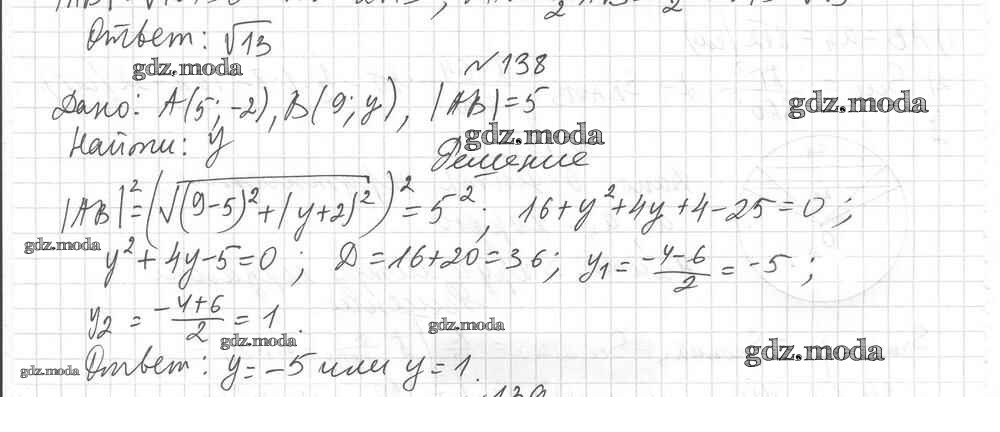 Ответ: √13
gdz.moda
№138
Дано: A(5; -2), B(9; y), |AB|=5
gdz.moda
gdz.moda
Найти: y
Решение
|AB|²=(√((9-5)²+(y+2)²))²=5²; 16+y²+4y+4-25=0;
gdz.moda
y²+4y-5=0; D=16+20=36; y₁=(-4-6)/2=-5;
y₂=(-4+6)/2=1.
gdz.moda
gdz.moda
gdz.moda
gdz.moda
Ответ: y=-5 или y=1.
139